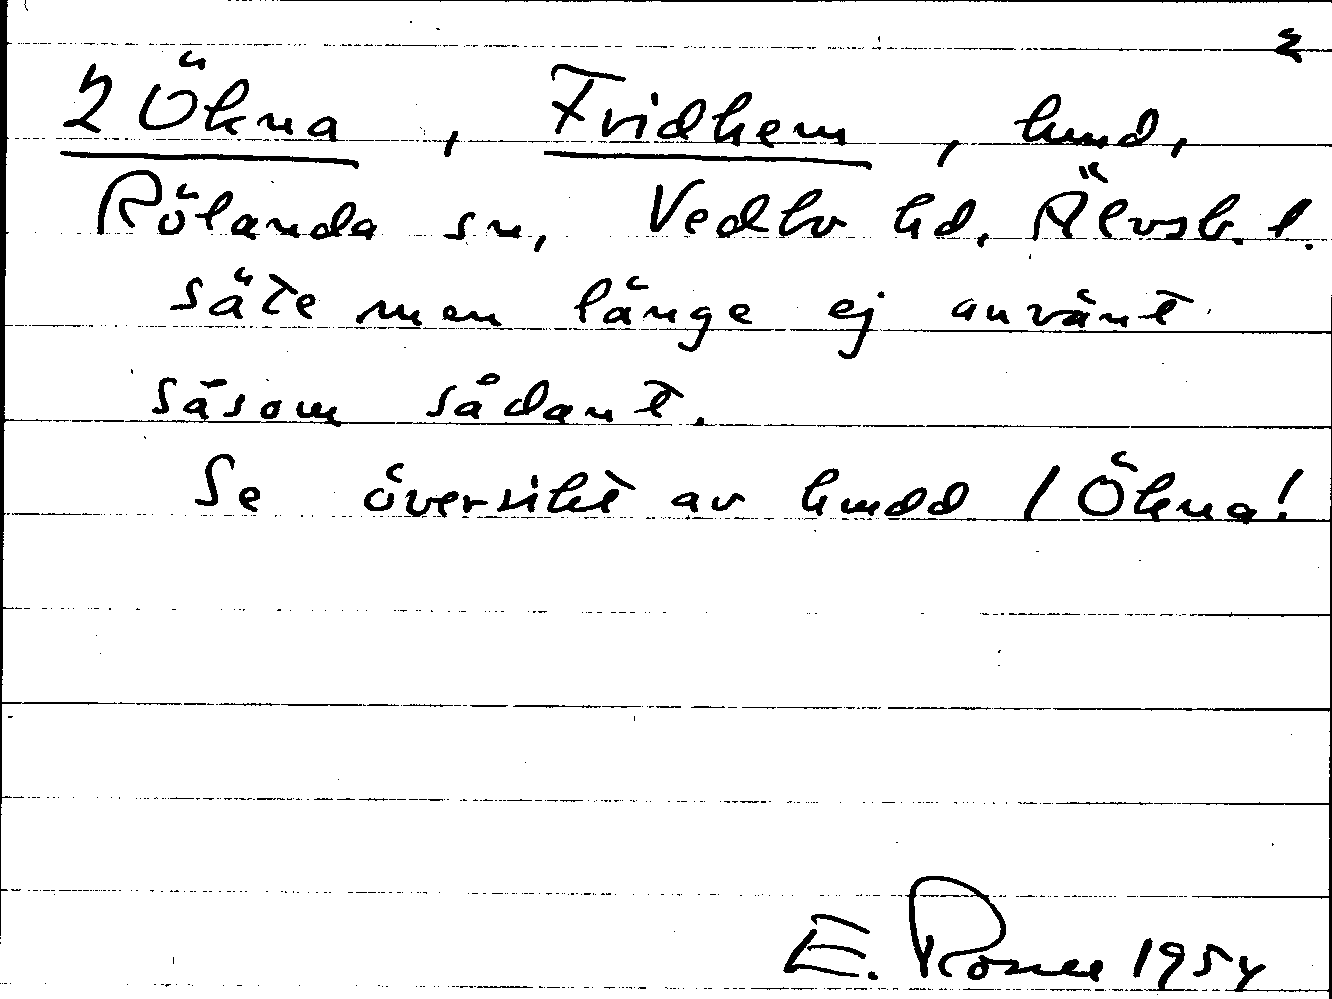 2
2 Ökna, Fridhem, hmd,
Rölanda sn, Vedbo hd. Älvsb. l.
säte men länge ej använt
såsom sådant.
Se översikt av hmdd 1 Ökna!
E. Rosell 1954